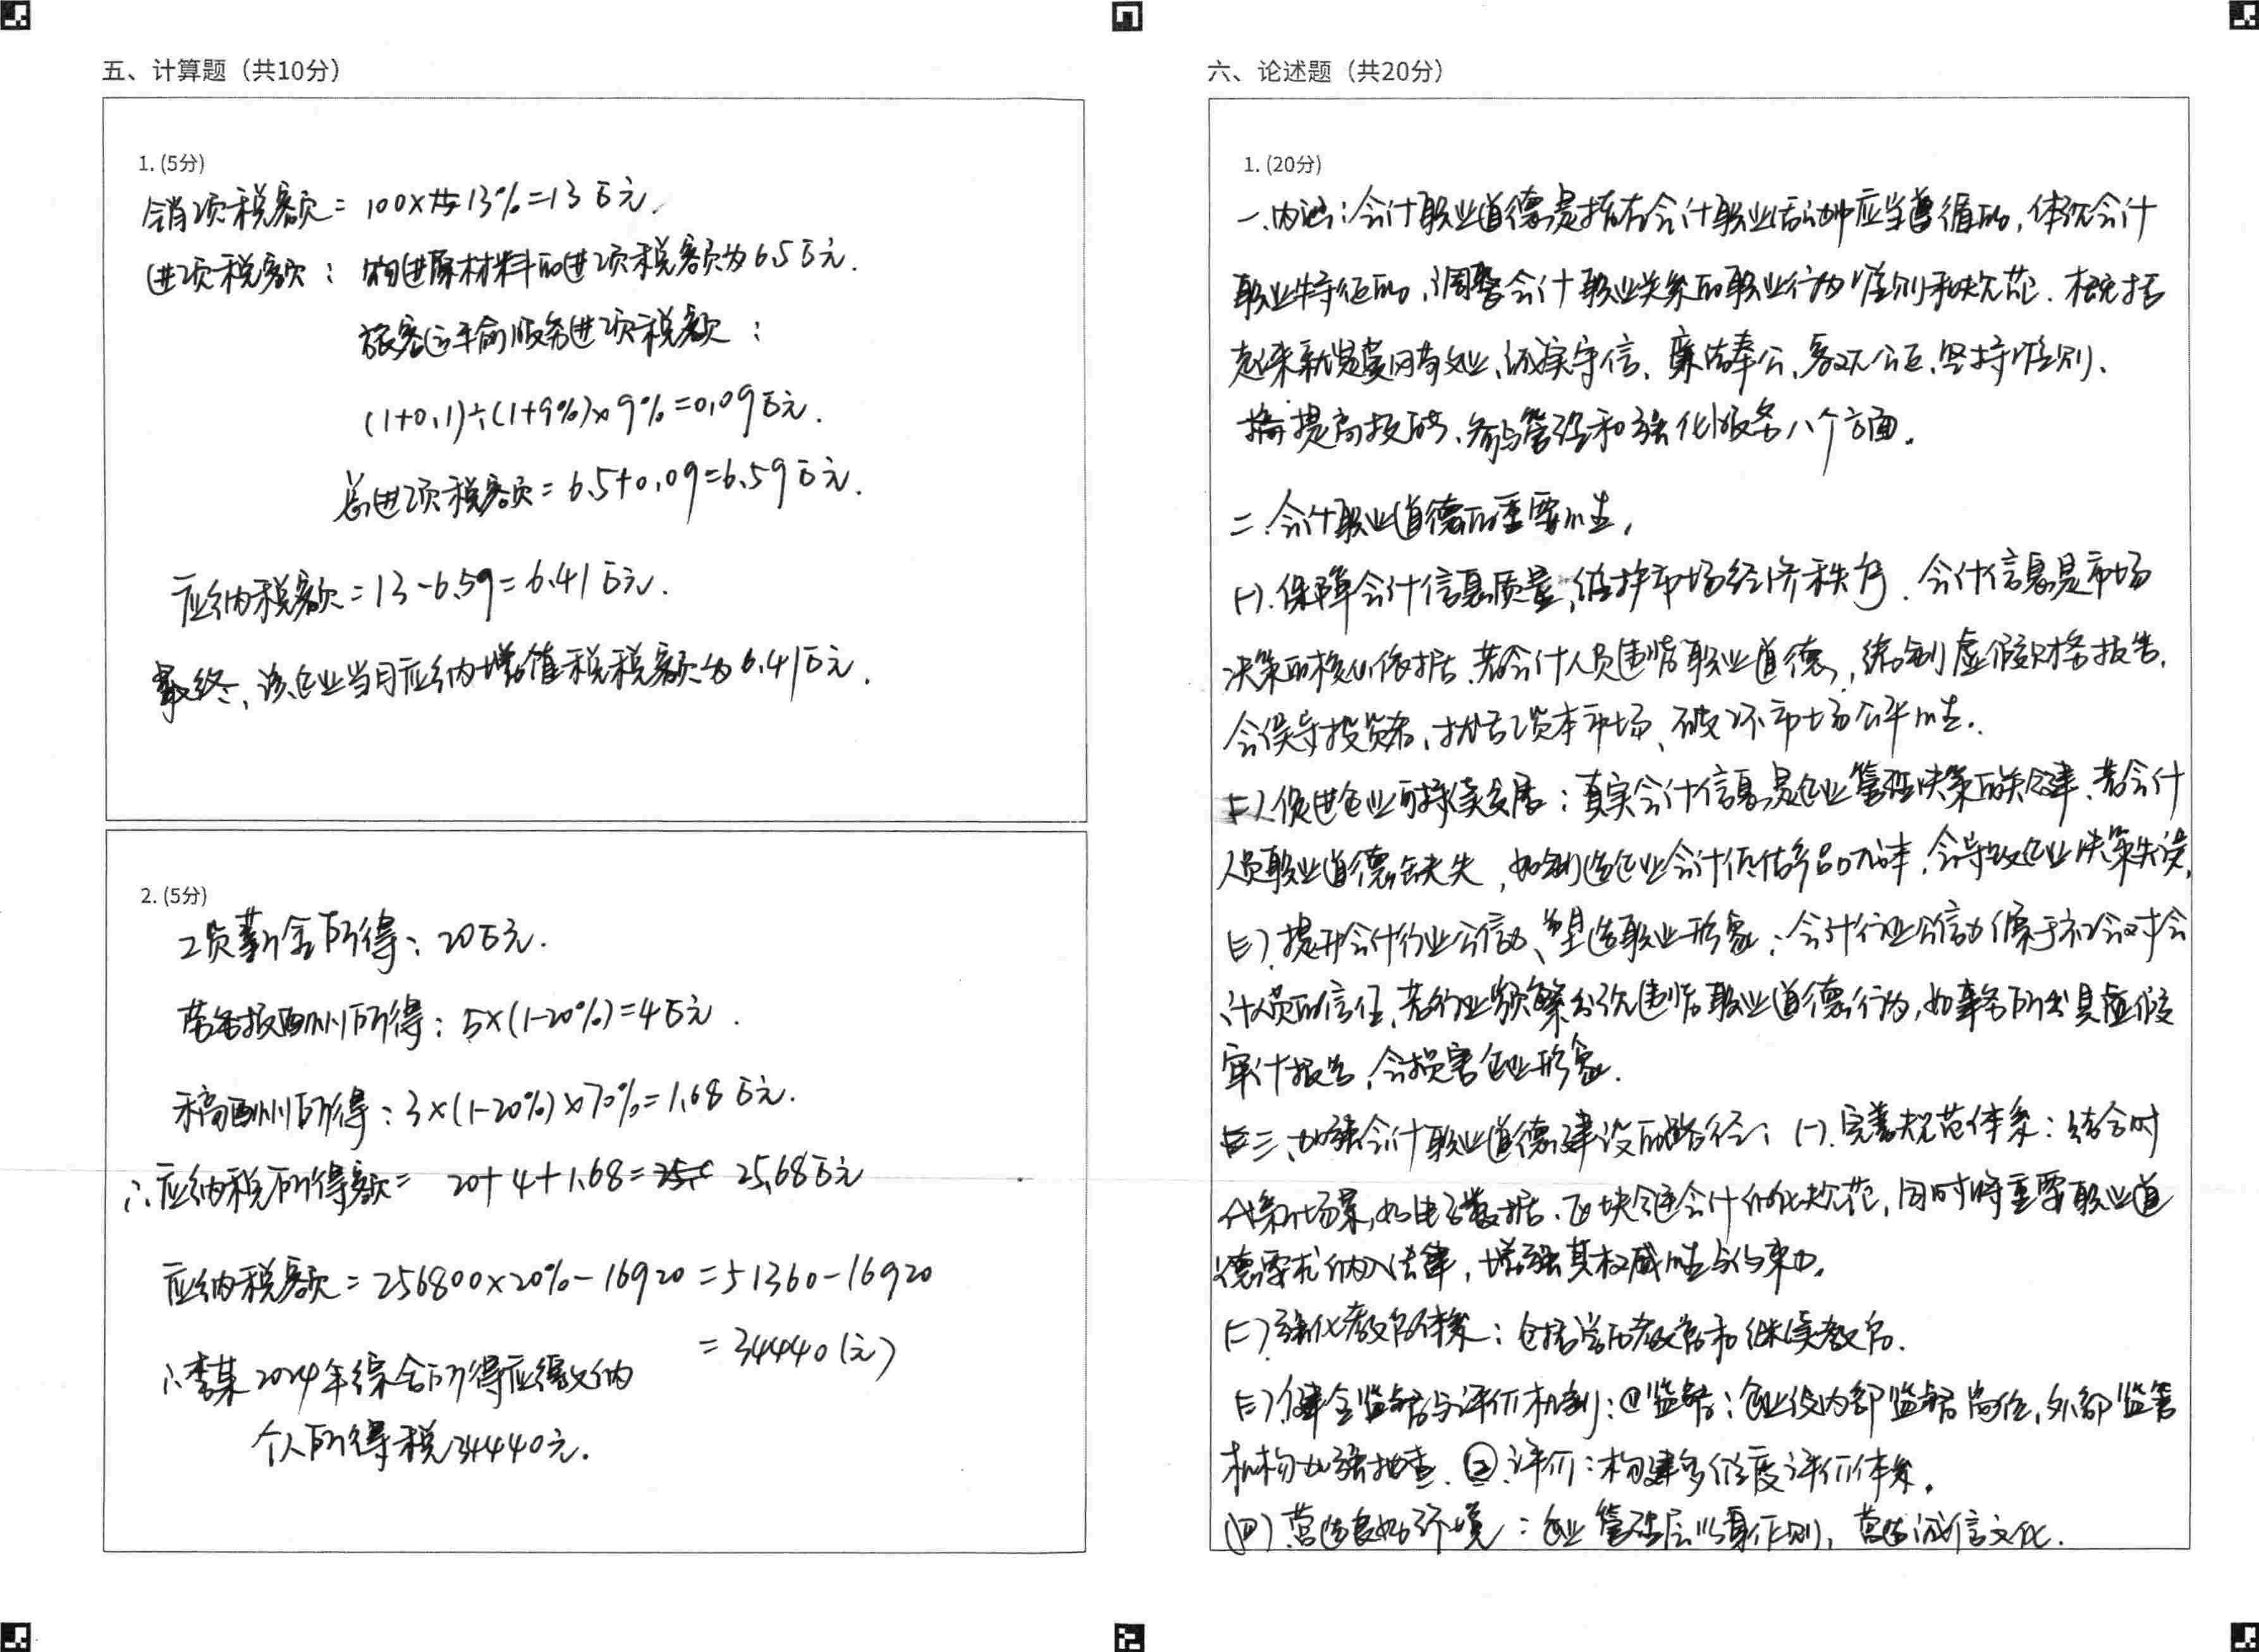 五、计算题（共10分）
1. (5分)
销项税额 = 100×13%=13万元.
进项税额： 购进原材料的进项税额为6.5万元.
旅客运输服务进项税额：
(1+0.1)÷(1+9%)×9%=0.09万元.
总进项税额 = 6.5+0.09=6.59万元.
应纳税额 = 13-6.59=6.41万元.
最终, 该企业当月应纳增值税税额为6.41万元.
2. (5分)
工资薪金所得：20万元.
劳务报酬所得：5×(1-20%)=4万元.
稿酬所得：3×(1-20%)×70%=1.68万元.
∴应纳税所得额= 20+4+1.68= 25.68万元
应纳税额 = 256800×20%-16920 = 51360-16920
= 34440(元)
∴李某2024年综合所得应缴纳
个人所得税34440元.
六、论述题（共20分）
1. (20分)
一.内涵：会计职业道德是指在会计职业活动中应当遵循的, 体现会计
职业特征的, 调整会计职业关系的职业行为准则和规范. 概括
起来就是爱岗敬业、诚实守信、廉洁奉公、客观公正、坚持准则、
提高技能、参与管理和强化服务八个方面.
二.会计职业道德的重要性.
(一).保障会计信息质量,维护市场经济秩序. 会计信息是市场
决策的核心依据.若会计人员违背职业道德, 编制虚假财务报告,
会误导投资者, 扰乱资本市场、破坏市场公平性.
(二).促进企业可持续发展：真实会计信息是企业管理决策的关键.若会计
人员职业道德缺失, 如制造企业会计低估产品成本, 会导致企业决策失误.
(三).提升会计行业公信力、塑造职业形象：会计行业公信力源于社会对会
计人员的信任,若行业频繁出现违背职业道德行为,如事务所出具虚假
审计报告,会损害企业形象.
三、加强会计职业道德建设的路径：(一).完善规范体系：结合时
代新场景,如电子数据、区块链会计细化规范,同时将重要职业道
德要求纳入法律, 增强其权威性与约束力.
(二)强化教育体系：包括学历教育和继续教育.
(三)健全监督与评价机制：①监督：企业设内部监督岗位,外部监管
机构加强抽查.②评价：构建多维度评价体系.
(四).营造良好环境：企业管理层以身作则, 营造诚信文化.